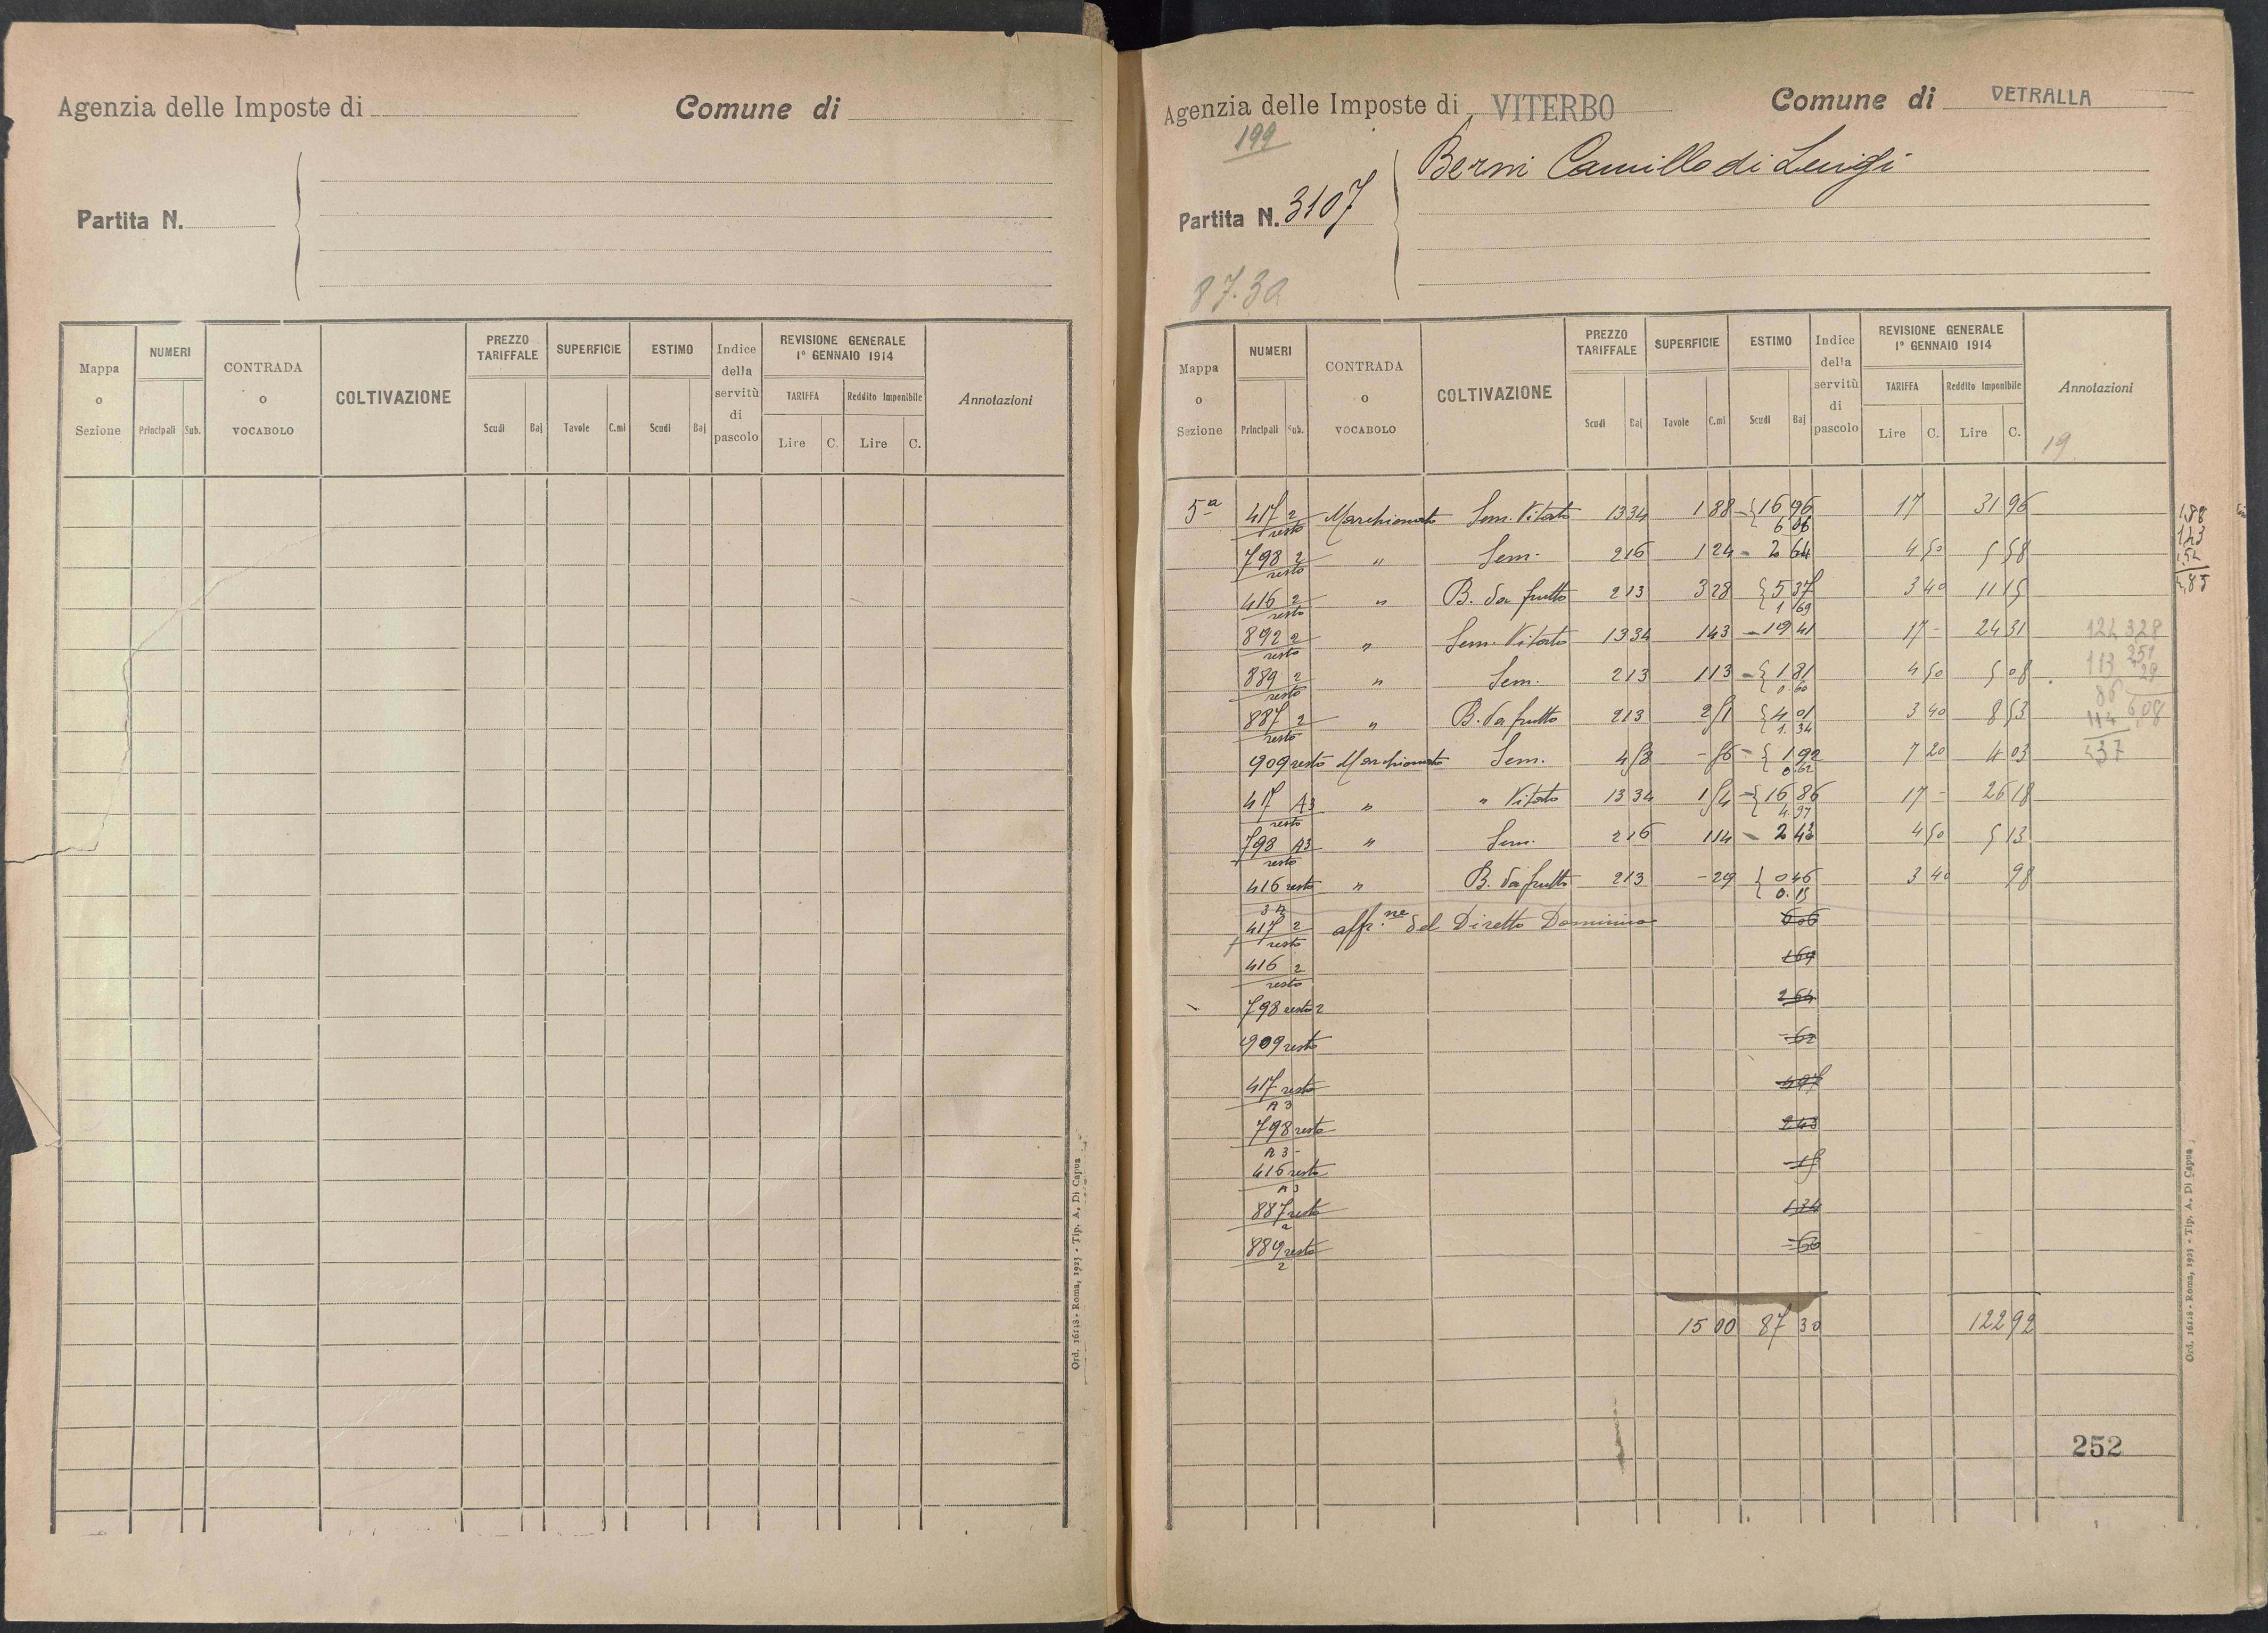 Agenzia delle Imposte di
Comune di
Partita N.
Mappa o Sezione
NUMERI
Principali Sub.
CONTRADA o VOCABOLO
COLTIVAZIONE
PREZZO TARIFFALE
Scudi Baj
SUPERFICIE
Tavole C.mi
ESTIMO
Scudi Baj
Indice della servitù di pascolo
REVISIONE GENERALE 1° GENNAIO 1914
TARIFFA
Lire C.
Reddito Imponibile
Lire C.
Annotazioni
Ord. 16118 - Roma, 1923 - Tip. A. Di Capua
Agenzia delle Imposte di VITERBO
Comune di VETRALLA
199
Berni Camillo di Luigi
Partita N. 3107
87.30
Mappa o Sezione
NUMERI
Principali Sub.
CONTRADA o VOCABOLO
COLTIVAZIONE
PREZZO TARIFFALE
Scudi Baj
SUPERFICIE
Tavole C.mi
ESTIMO
Scudi Baj
Indice della servitù di pascolo
REVISIONE GENERALE 1° GENNAIO 1914
TARIFFA
Lire C.
Reddito Imponibile
Lire C.
Annotazioni
19
5a 417 2 resto Marchionato Sem. Vitato 13 34 1 88 - { 16 96 17 31 96
6 06
798 2 resto " Sem. 2 16 1 24 - 2 64 4 50 5 58
416 2 resto " B. da frutto 2 13 3 28 { 5 37 3 40 11 15
1 69
892 2 resto " Sem. Vitato 13 34 1 43 - 19 41 17 - 24 31
889 2 resto " Sem. 2 13 1 13 - { 1 81 4 50 5 08
0.60
887 2 resto " B. da frutto 2 13 2 51 { 4 01 3 40 8 53
1.34
909 resto Marchionato Sem. 4 58 - 56 - { 1 92 7 20 4 03
0.62
417 A3 resto " " Vitato 13 34 1 54 - { 16 86 17 - 26 18
4.97
798 A3 resto " Sem. 2 16 1 14 - 2 43 4 50 5 13
416 resto " B. da frutto 2 13 - 29 { 0 46 3 40 98
0.15
3 A
417 2 resto affr.ne del Diretto Dominio 6 06
416 2 resto 1 69
798 resto 2 2 64
909 resto - 62
417 resto A 3 4 97
798 resto A 3 2 43
416 resto A 3 - 15
887 resto 2 1 34
889 resto 2 - 60
15 00 87 30 122 92
1,88
1,43
1,54
4,85
124 328
113 251
29
86 6,08
114
437
252
Ord. 16118 - Roma, 1923 - Tip. A. Di Capua